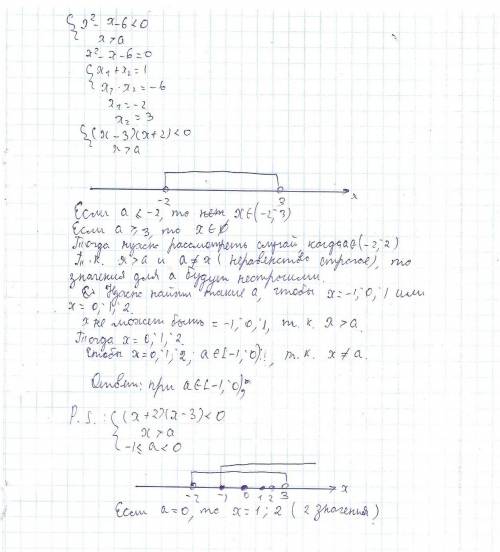 { x² - x - 6 < 0
x > a
x² - x - 6 = 0
{ x₁ + x₂ = 1
x₁ · x₂ = -6
x₁ = -2
x₂ = 3
{ (x - 3)(x + 2) < 0
x > a
-2 3 x
Если a ≤ -2, то x ∈ (-2; 3)
Если a ≥ 3, то x ∈ ∅
Тогда нужно рассмотреть случай когда a ∈ (-2; 2)
Т.к. x > a и a ≠ x (неравенство строгое), то
значения для a будут нестрогими.
Нужно найти такие a, чтобы x = -1; 0; 1 или
x = 0; 1; 2.
x не может быть = -1; 0; 1, т.к. x > a.
Тогда x = 0; 1; 2.
Чтобы x = 0; 1; 2, a ∈ [-1; 0), т.к. x ≠ a.
Ответ: при a ∈ [-1; 0)*
P.S.: { (x + 2)(x - 3) < 0
x > a
-1 ≤ a < 0
-2 -1 0 1 2 3 x
Если a = 0, то x = 1; 2 (2 значения)